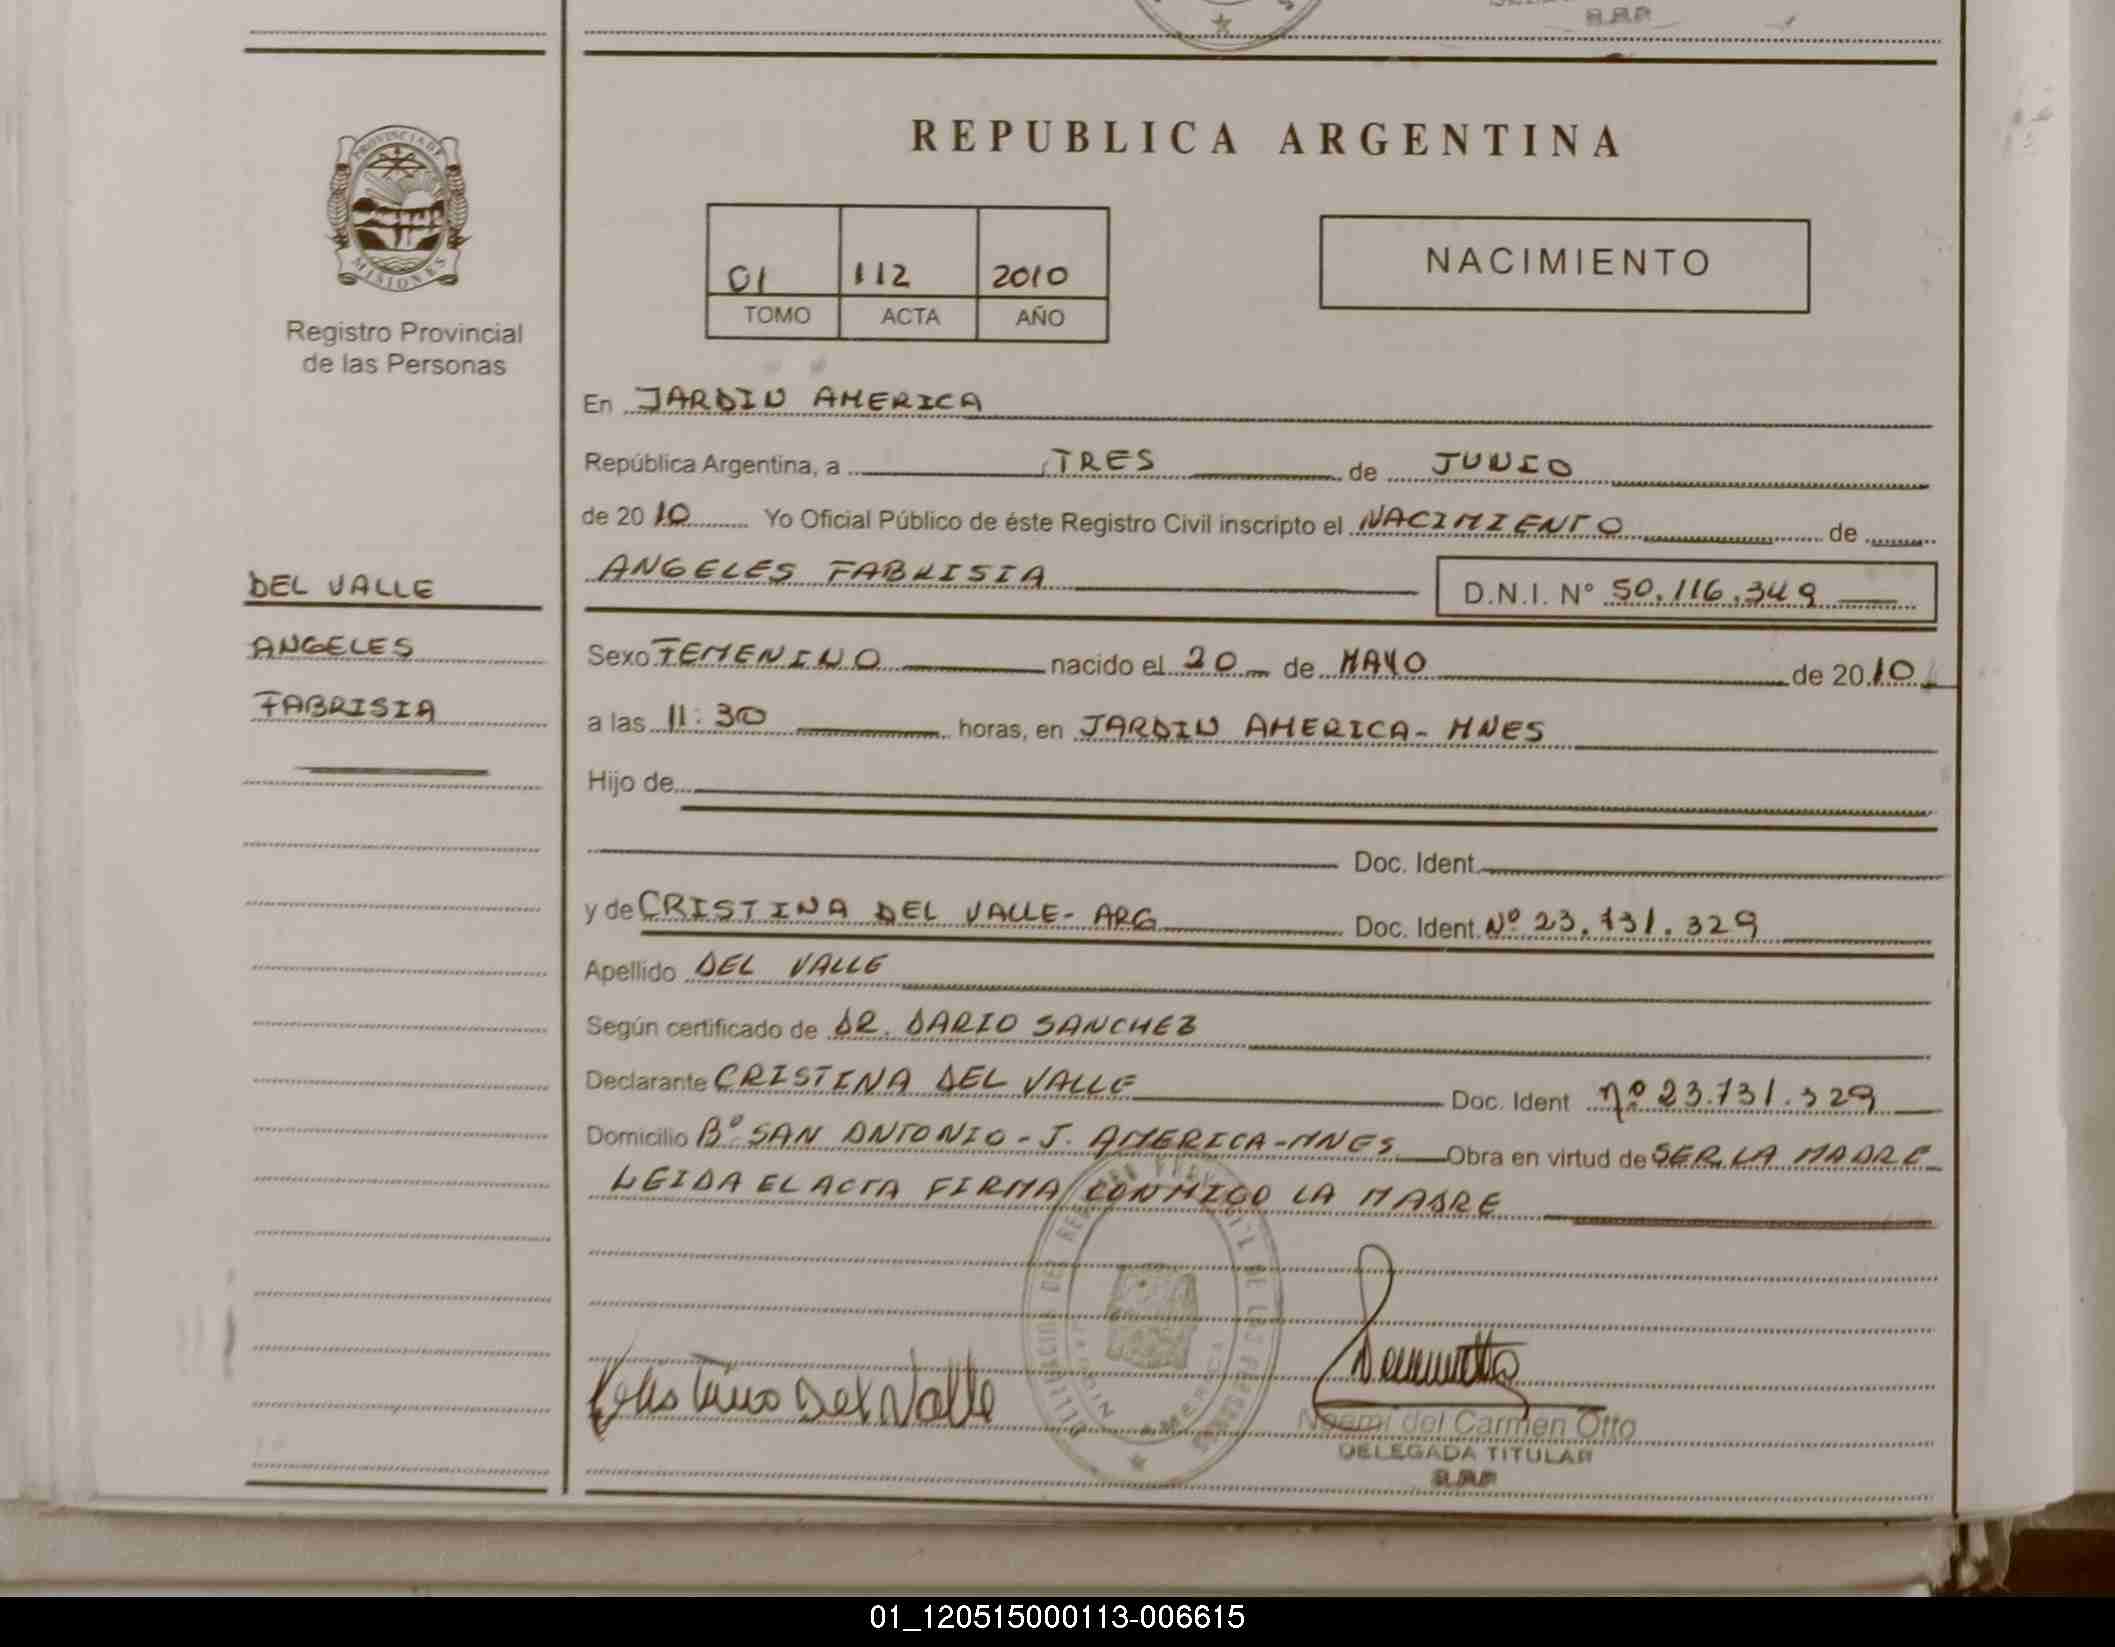 REPUBLICA ARGENTINA
PROVINCIA DE
MISIONES
Registro Provincial
de las Personas
DEL VALLE
ANGELES
FABRISIA
01 112 2010
TOMO ACTA AÑO
NACIMIENTO
En JARDIN AMERICA
República Argentina, a TRES de JUNIO
de 2010 Yo Oficial Público de éste Registro Civil inscripto el NACIMIENTO de
ANGELES FABRISIA D.N.I. Nº 50.116.349
Sexo FEMENINO nacido el 20 de MAYO de 2010
a las 11:30 horas, en JARDIN AMERICA- MNES
Hijo de
Doc. Ident.
y de CRISTINA DEL VALLE- ARG Doc. Ident. Nº 23.731.329
Apellido DEL VALLE
Según certificado de DR. DARIO SANCHEZ
Declarante CRISTINA DEL VALLE Doc. Ident nº 23.731.329
Domicilio Bº SAN ANTONIO - J. AMERICA-MNES Obra en virtud de SER LA MADRE
LEIDA EL ACTA FIRMA CONMIGO LA MADRE
Cristina Del Valle
Noemi del Carmen Otto
DELEGADA TITULAR
01_120515000113-006615